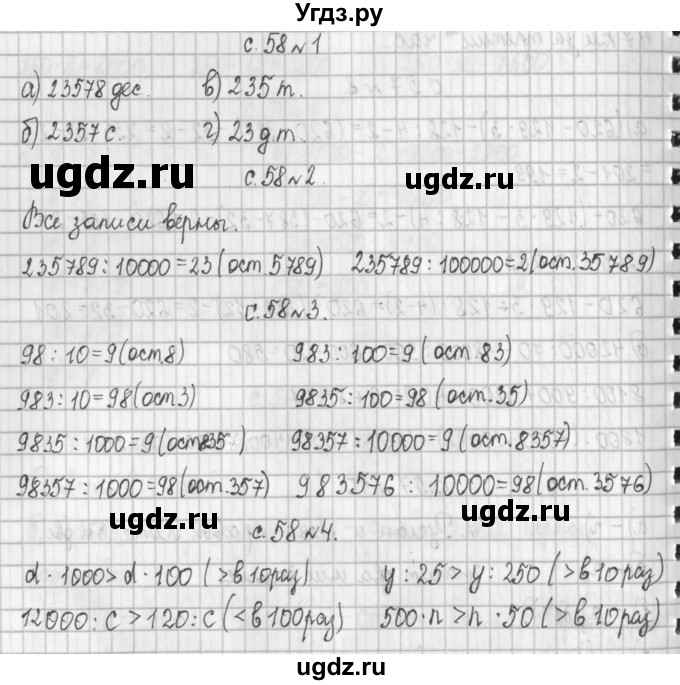 Угдз.ру
с.58 №1
а) 23578 дес. в) 235 т.
б) 2357 с. г) 23 д.т.
ugdz.ru ugdz.ru
с.58 №2.
Все записи верны.
235789 : 10000 = 23 (ост. 5789) 235789 : 100000 = 2 (ост. 35789)
с.58 №3.
98 : 10 = 9 (ост. 8) 983 : 100 = 9 (ост. 83)
983 : 10 = 98 (ост. 3) 9835 : 100 = 98 (ост. 35)
9835 : 1000 = 9 (ост. 835) 98357 : 10000 = 9 (ост. 8357)
98357 : 1000 = 98 (ост. 357) 983576 : 10000 = 98 (ост. 3576)
ugdz.ru ugdz.ru
с.58 №4.
d · 1000 > d · 100 (> в 10 раз) y : 25 > y : 250 (> в 10 раз)
12000 : c > 120 : c (< в 100 раз) 500 · n > n · 50 (> в 10 раз)
ugdz.ru